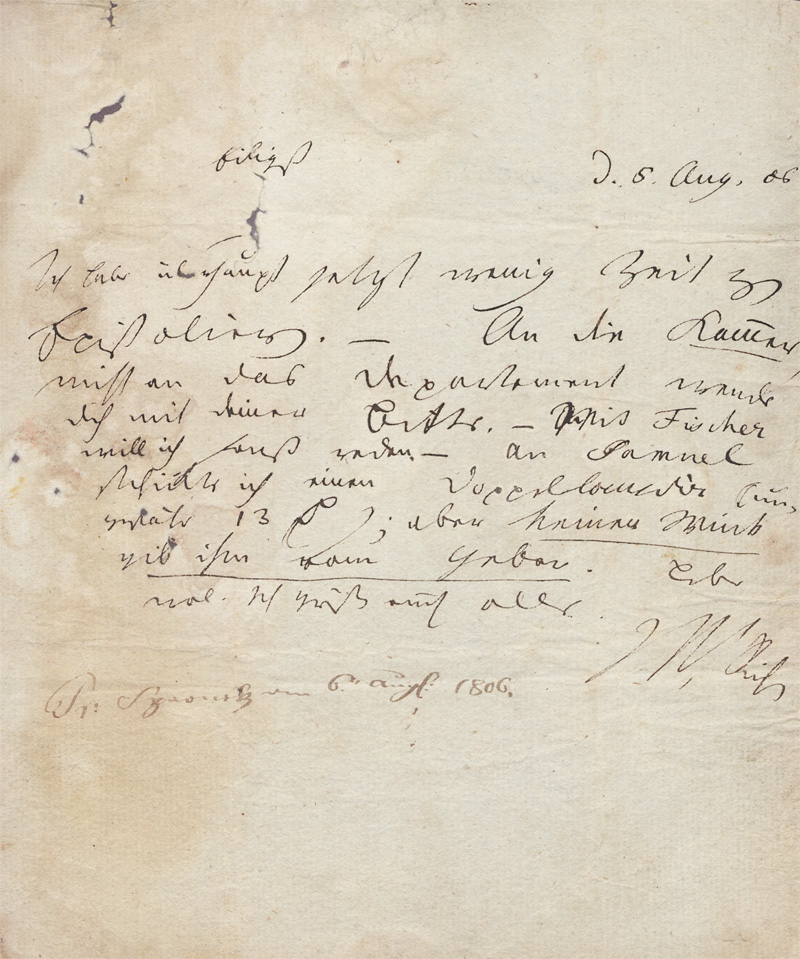 Eiligst
D. 5. Aug. 06
Ich habe überhaupt jetzt wenig Zeit zu
Epistolieren. — An die Kammer,
nicht an das Departement wende
dich mit deiner Bitte. — Mit Fischer
will ich sonst reden. — An Samuel
schickte ich einen Doppellouisdor
13 ; aber keinen Wink
gib ihm vom Geber. Lebe
wol. Ich grüße euch alle.
J. W.
am 6. Augst. 1806.